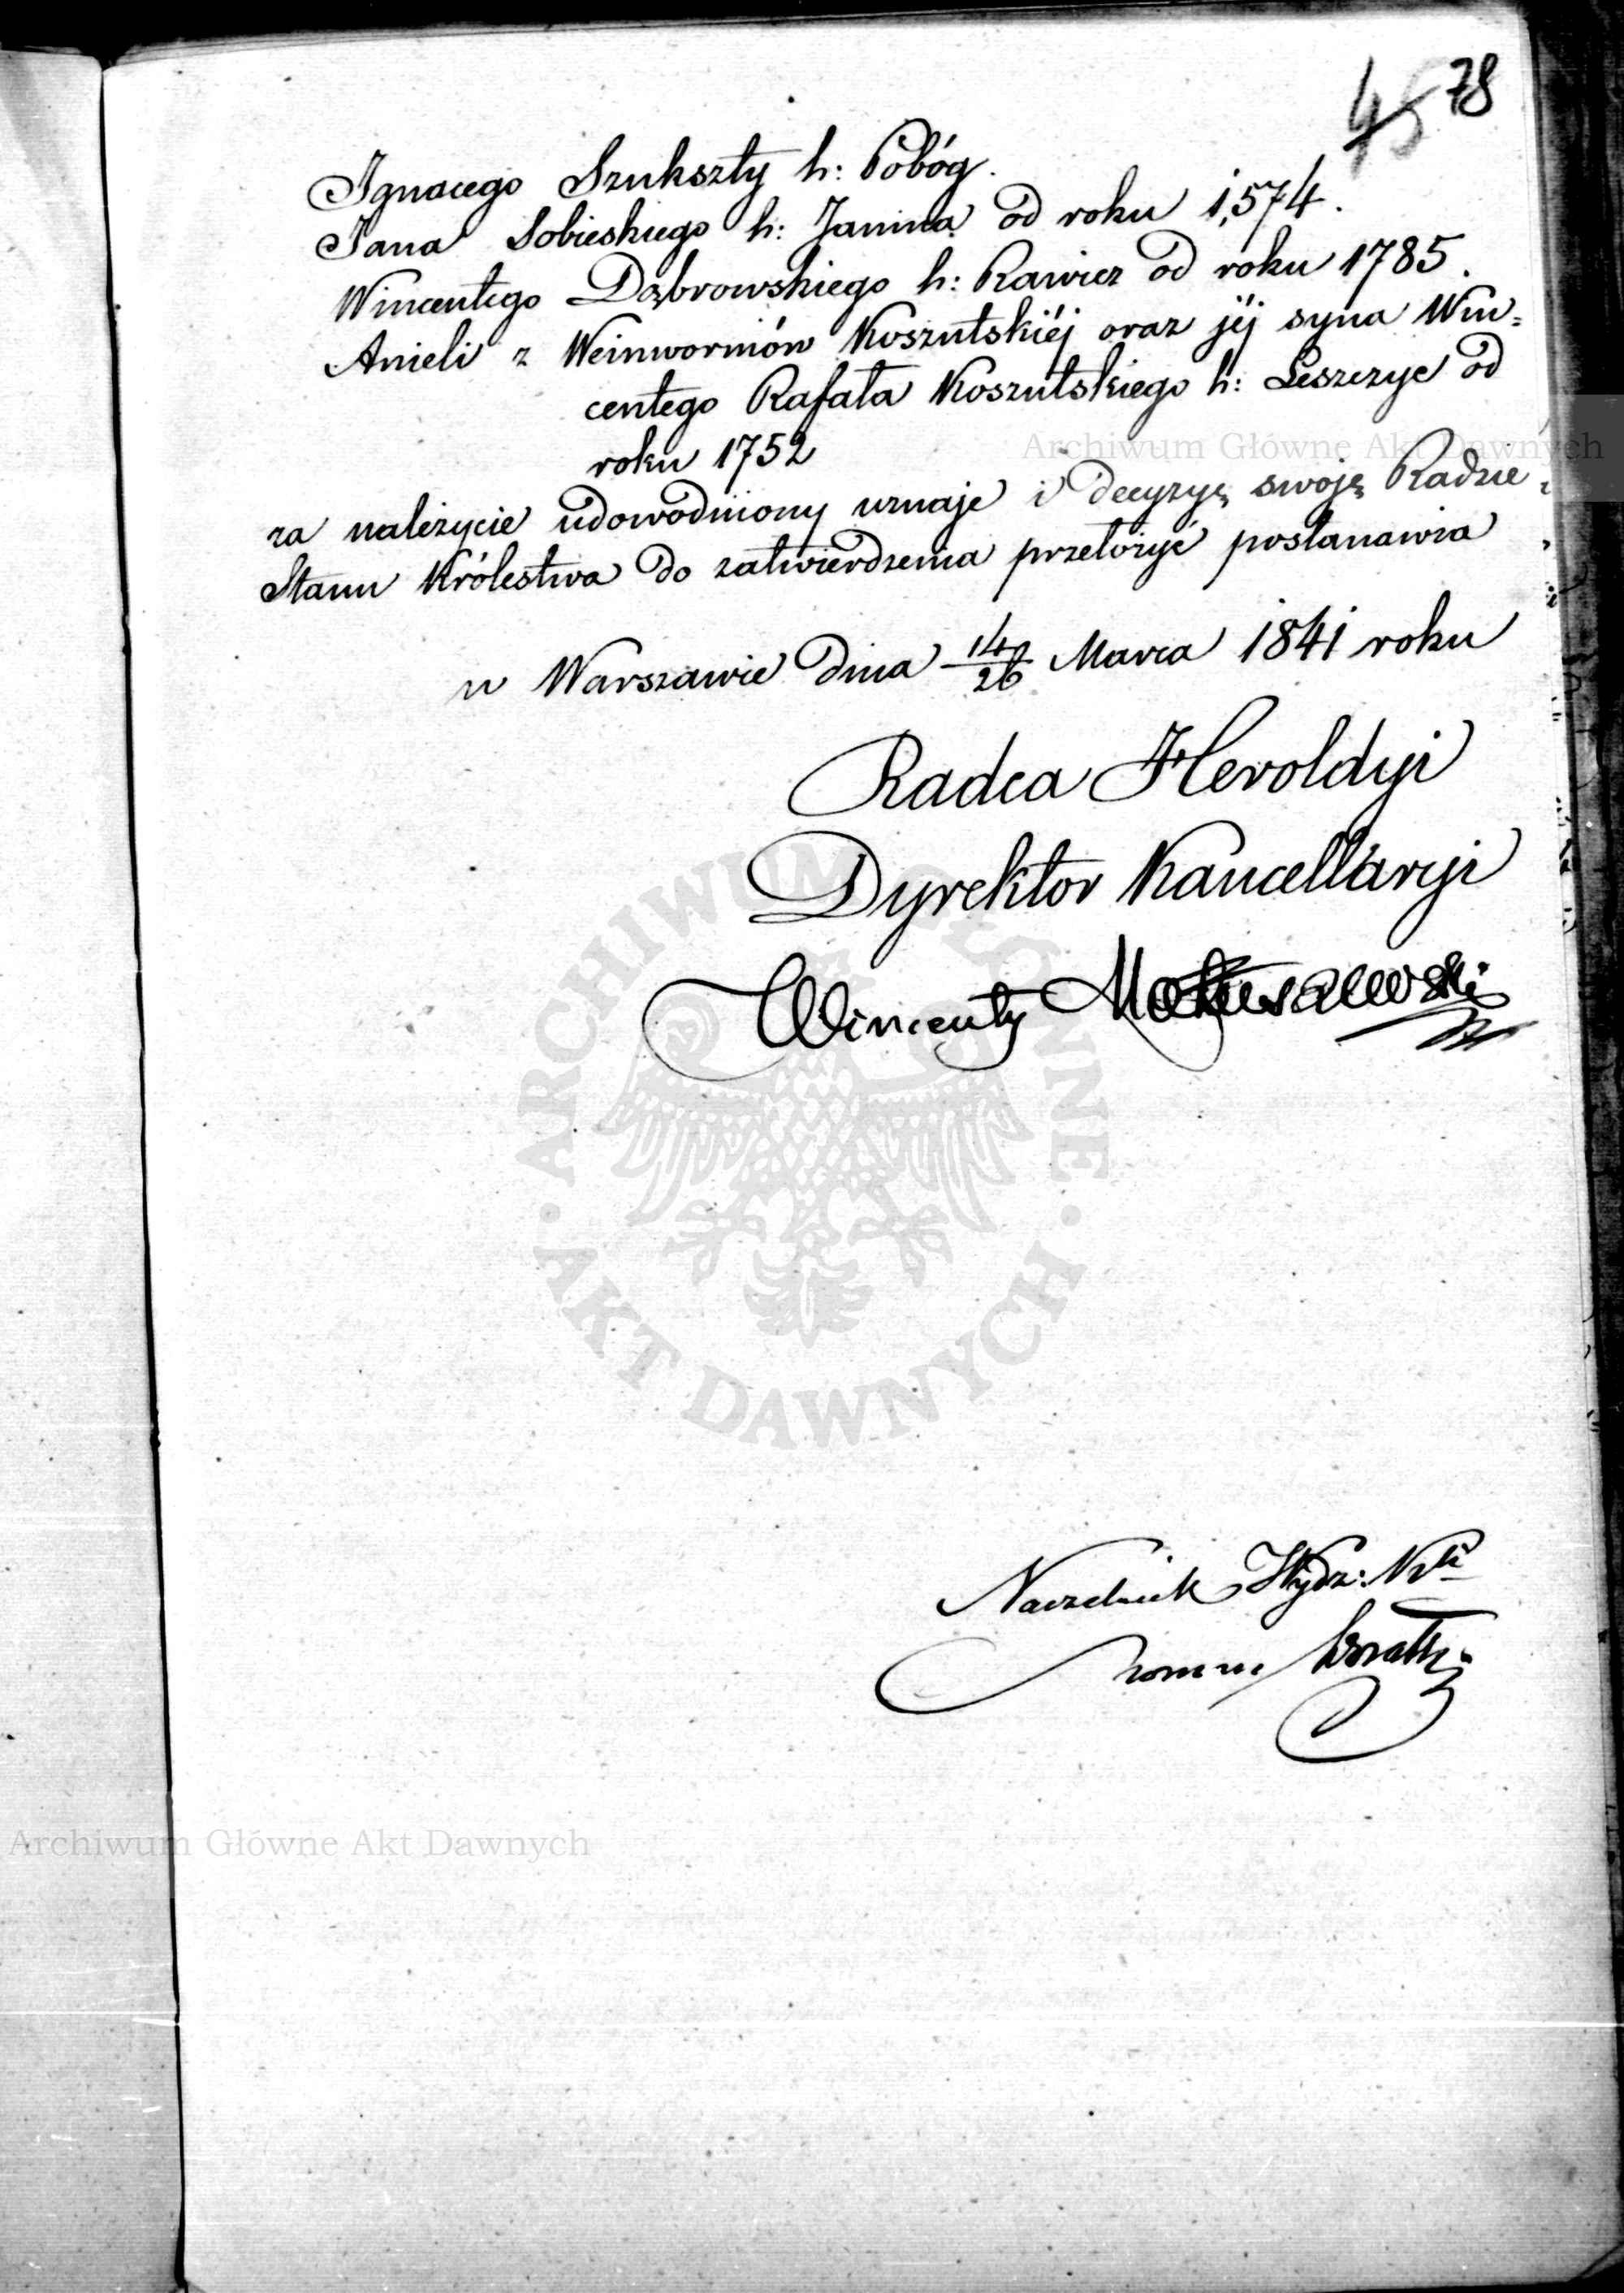 45 78
Ignacego Szukszty h: Pobóg.
Jana Sobieskiego h: Janina od roku 1,574.
Wincentego Dąbrowskiego h: Rawicz od roku 1785.
Anieli z Weinwornów Koszutskiéj oraz jéj syna Win=
centego Rafała Koszutskiego h: Leszczyc od
roku 1752
Archiwum Główne Akt Dawnych
za należycie udowodniony uznaje i decyzyę swoję Radzie
Stanu Królestwa do zatwierdzenia przełożyć postanawia
w Warszawie dnia 14/26 Marca 1841 roku
Radca Heroldyi
Dyrektor Kancellaryi
Wincenty Matuszewski
ARCHIWUM GŁÓWNE
· AKT DAWNYCH ·
Naczelnik Wydz:
Archiwum Główne Akt Dawnych